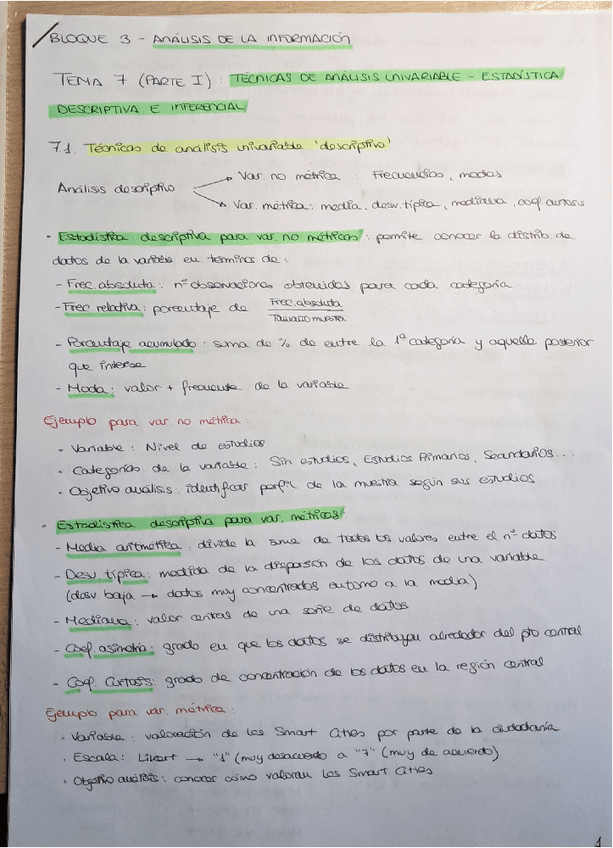 BLOQUE 3 - ANÁLISIS DE LA INFORMACIÓN
TEMA 7 (PARTE I): TÉCNICAS DE ANÁLISIS UNIVARIABLE - ESTADÍSTICA
DESCRIPTIVA E INFERENCIAL
7.1. Técnicas de análisis univariable 'descriptivo'
Var. no métrica : Frecuencias, modas
Análisis descriptivo
Var. métrica: media, desv. típica, mediana, coef. curtosis
· Estadística descriptiva para var. no métricas: permite conocer la distrib. de
datos de la variable en términos de:
- Frec. absoluta: nº observaciones obtenidas para cada categoría
- Frec relativa: porcentaje de Frec. absoluta
Tamaño muestra
- Porcentaje acumulado: suma de % de entre la 1ª categoría y aquella posterior
que interese
- Moda: valor + frecuente de la variable
Ejemplo para var. no métrica:
- Variable: Nivel de estudios
- Categorías de la variable: Sin estudios, Estudios Primarios, Secundarios...
- Objetivo análisis: identificar perfil de la muestra según sus estudios
· Estadística descriptiva para var. métricas:
- Media aritmética: divide la suma de todos los valores entre el nº datos
- Desv típica: medida de la dispersión de los datos de una variable
(desv baja → datos muy concentrados entorno a la media)
- Mediana: valor central de una serie de datos
- Coef asimetría: grado en que los datos se distribuyen alrededor del pto central
- Coef. Curtosis: grado de concentración de los datos en la región central
Ejemplo para var. métrica:
· Variable: valoración de las Smart Cities por parte de la ciudadanía
· Escala: Likert → "1" (muy desacuerdo a "7" (muy de acuerdo)
· Objetivo análisis: conocer cómo valoran las Smart Cities
1